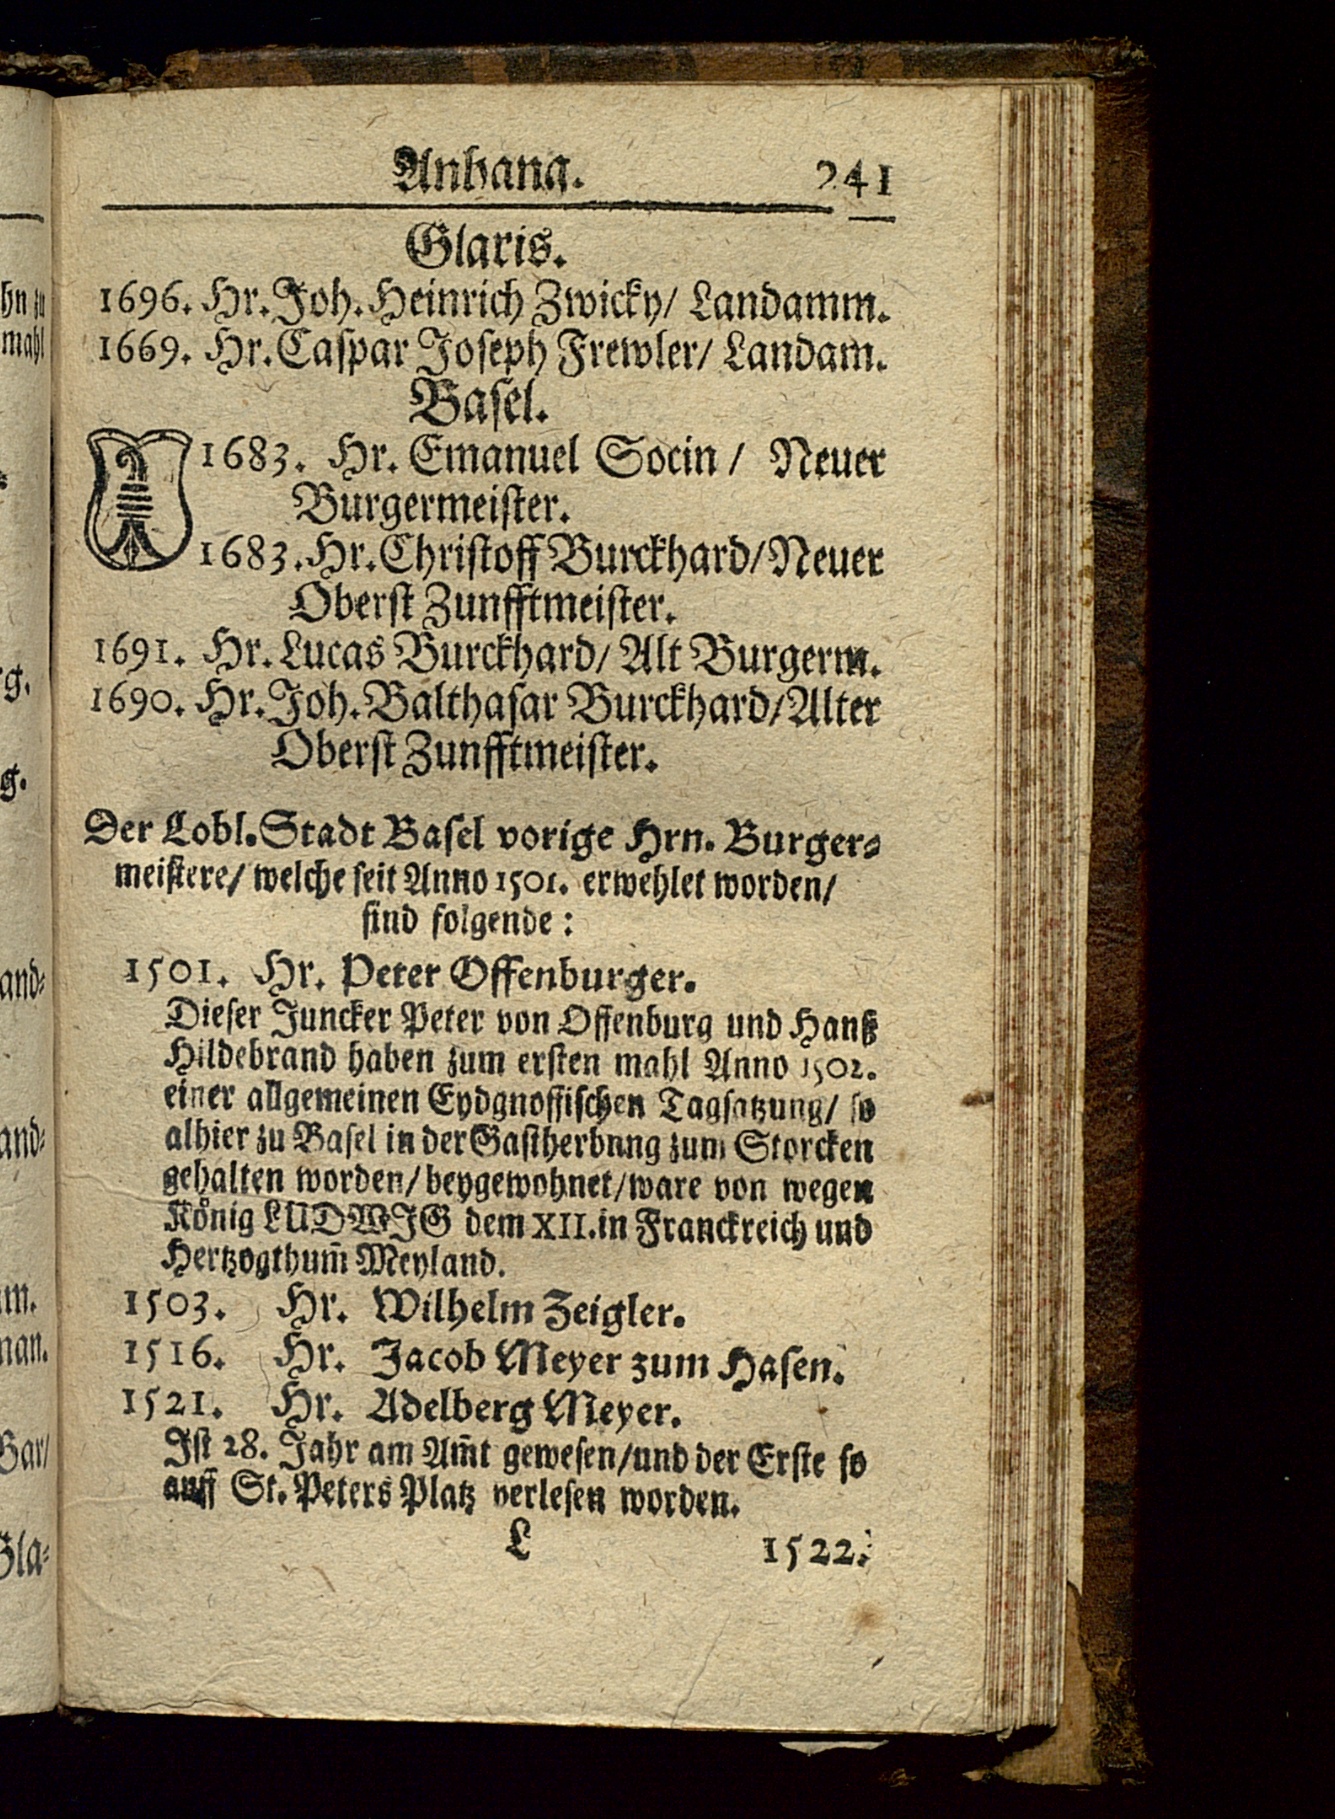 Anhang. 241
Glaris.
1696. Hr. Joh. Heinrich Zwicky/ Landamm.
1669. Hr. Caspar Joseph Frewler/ Landam̃.
Basel.
1683. Hr. Emanuel Socin / Neuer
Burgermeister.
1683. Hr. Christoff Burckhard/ Neuer
Oberst Zunfftmeister.
1691. Hr. Lucas Burckhard/ Alt Burgerm.
1690. Hr. Joh. Balthasar Burckhard/ Alter
Oberst Zunfftmeister.
Der Lobl. Stadt Basel vorige Hrn. Burger-
meistere/ welche seit Anno 1501. erwehlet worden/
sind folgende:
1501. Hr. Peter Offenburger.
Dieser Juncker Peter von Offenburg und Hanß
Hildebrand haben zum ersten mahl Anno 1502.
einer allgemeinen Eydgnossischen Tagsatzung/ so
alhier zu Basel in der Gastherbnng zum Storcken
gehalten worden/ beygewohnet/ ware von wegen
König LUDWIG dem XII. in Franckreich und
Hertzogthum̃ Meyland.
1503. Hr. Wilhelm Zeigler.
1516. Hr. Jacob Meyer zum Hasen.
1521. Hr. Adelberg Meyer.
Ist 28. Jahr am Am̃t gewesen/ und der Erste so
auff St. Peters Platz verlesen worden.
L 1522.
hn zu
mahl
rg.
g.
and-
and-
m.
nan.
Bar/
Gla-